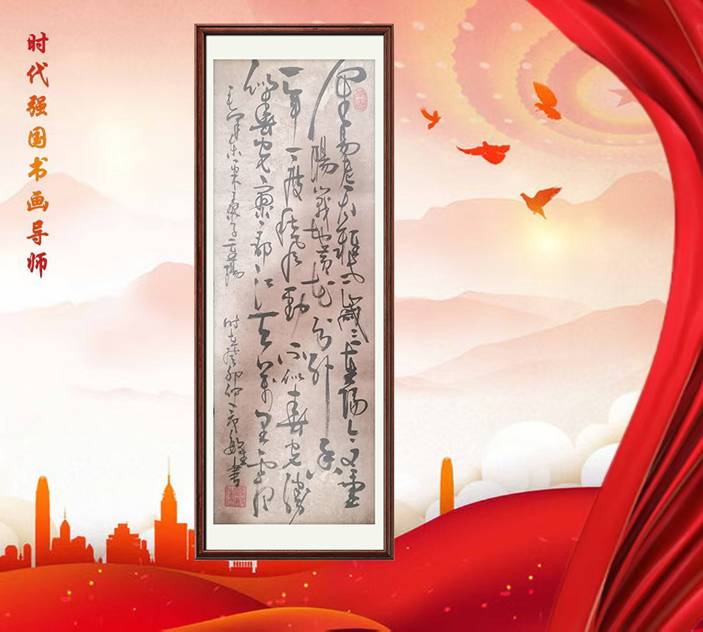 时代强国书画导师
人生易老天难老岁岁重阳今又重
阳战地黄花分外香
一年一度秋风劲不似春光胜
似春光寥廓江天万里霜
毛泽东采桑子重阳
时在癸卯仲 书